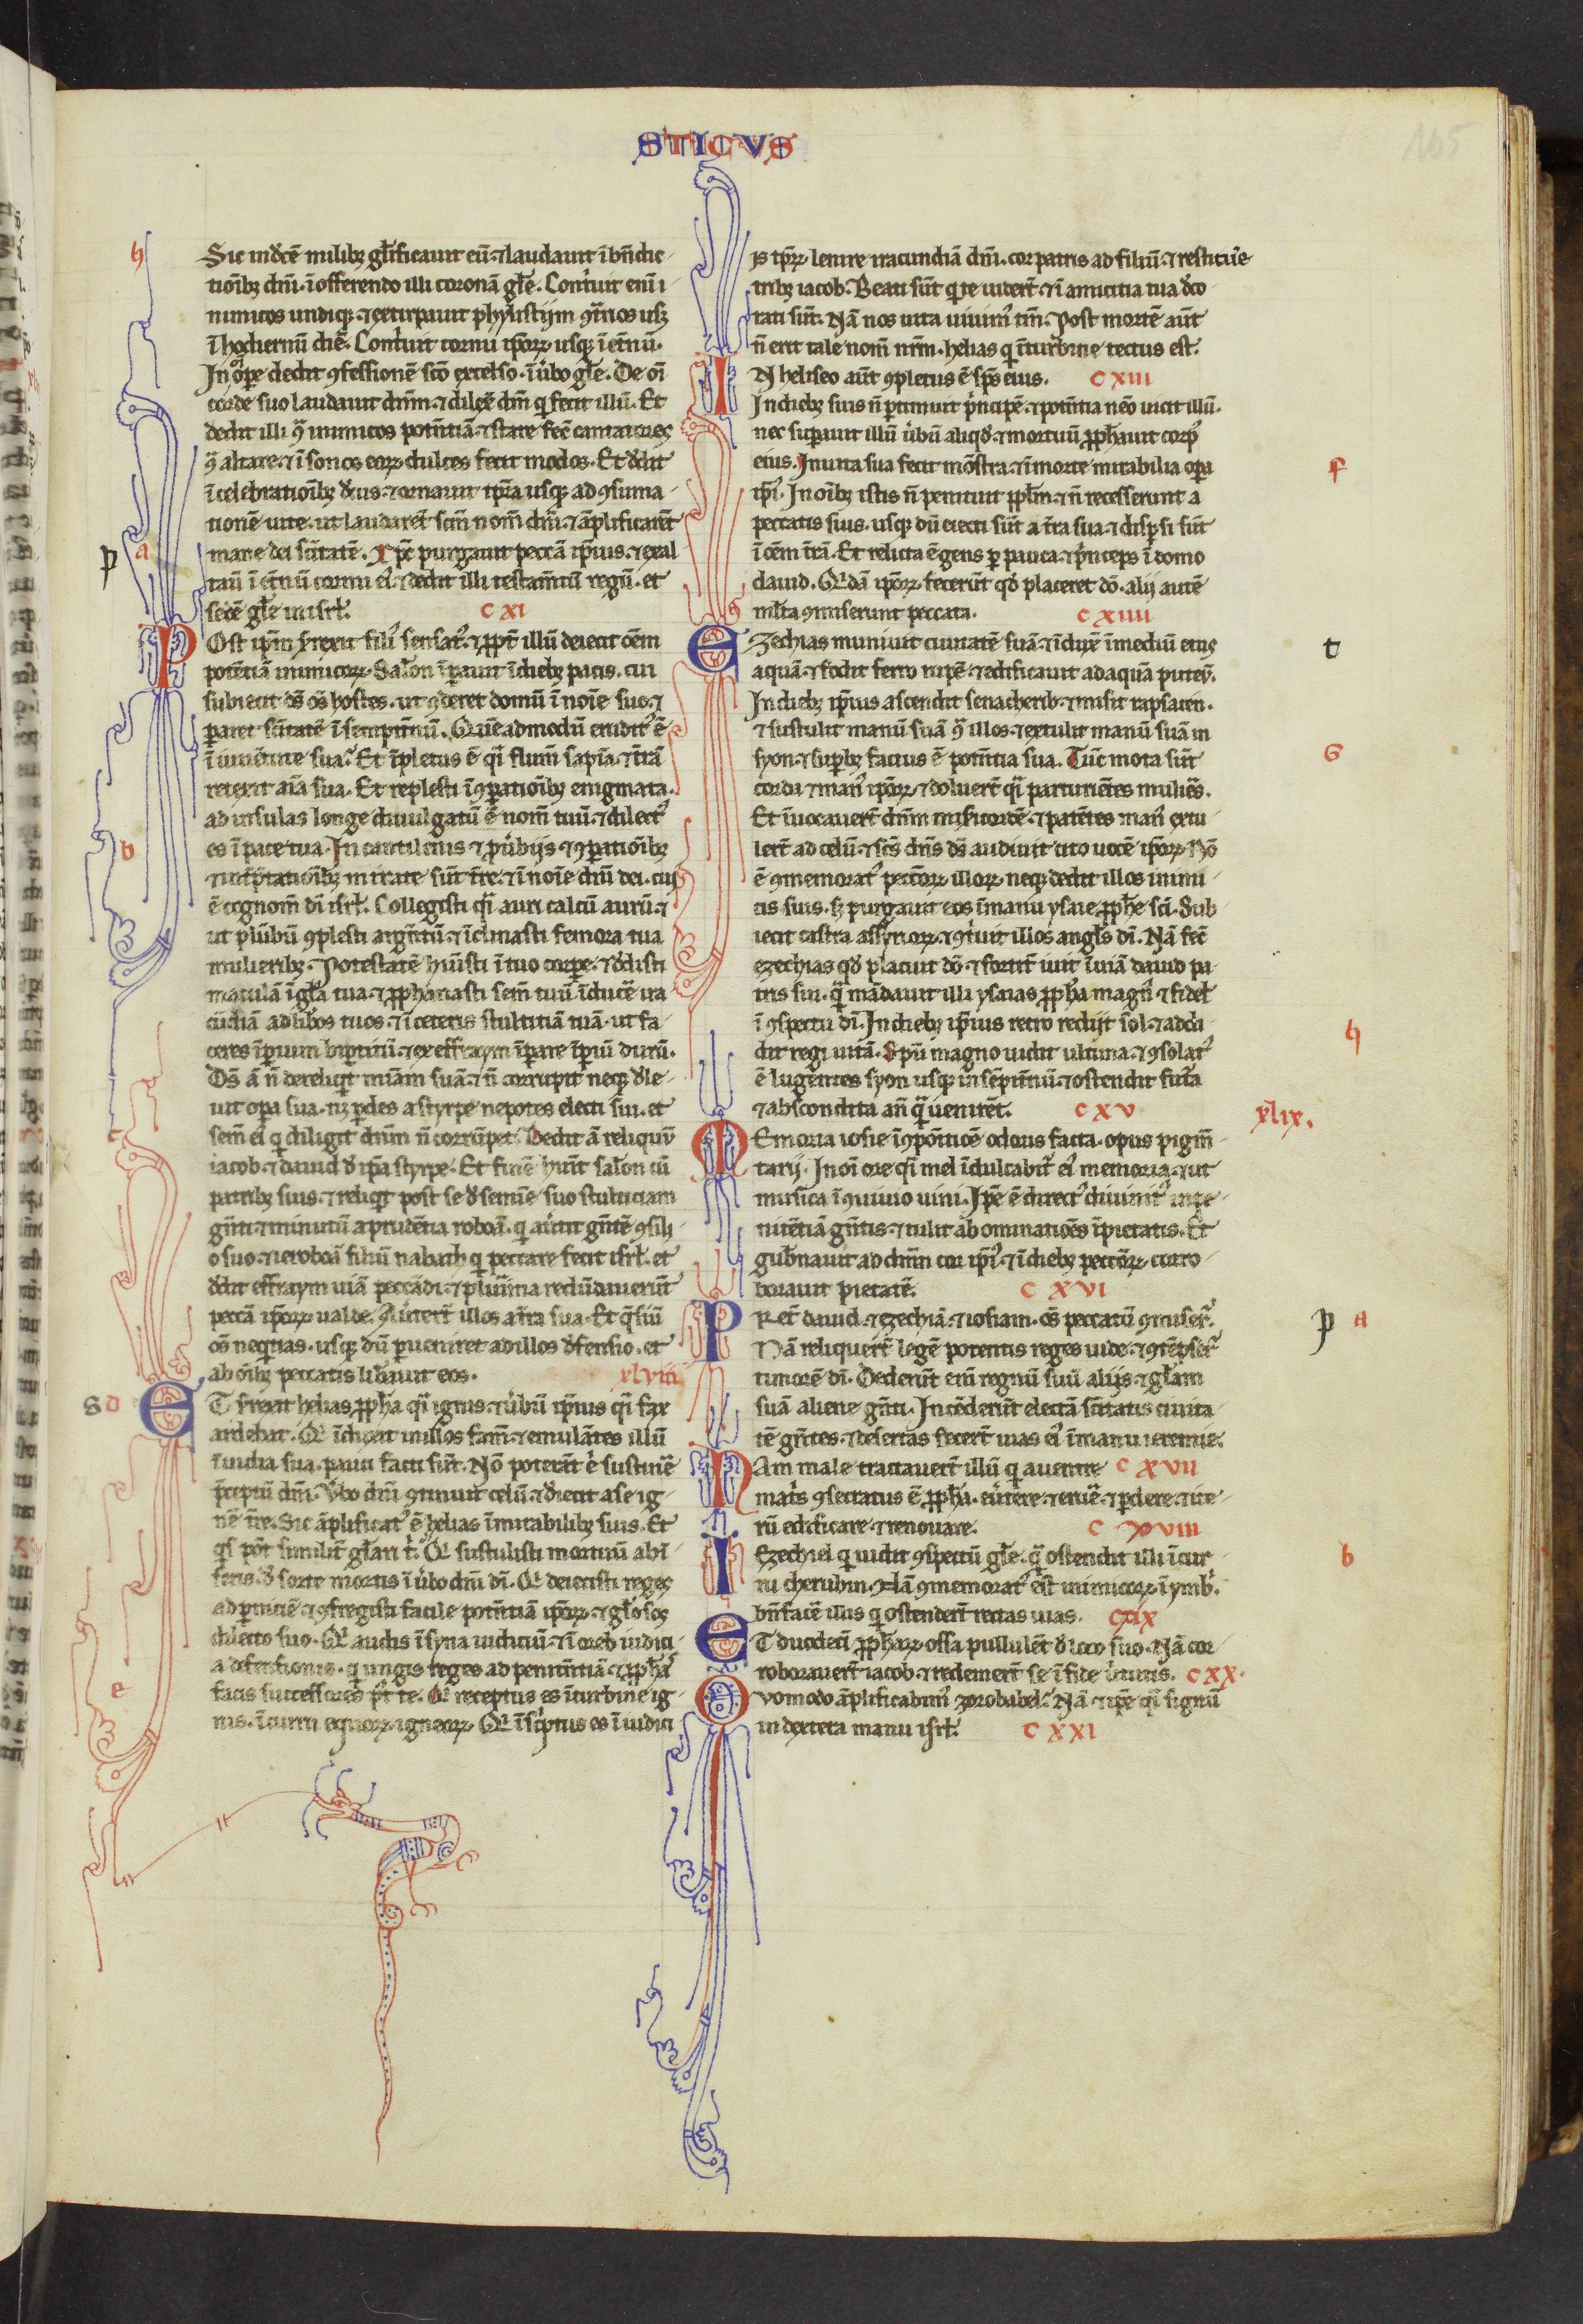 STICVS
105
h
Sic in dcē milibꝫ gl̄ificauit eū. ⁊ laudauit ī bn̄dic-
tioībꝫ dn̄i. ī offerendo illi coronā gl̄e. Cont'uit enī i
nimicos undiqꝫ. ⁊ extirpauit phylistijm ꝯt̄rios usqꝫ
ī hodiernū diē. Cont'uit cornu ip̄oꝝ usqꝫ ī et̄nū.
In oī oꝑe dedit ꝯfessionē sc̄o excelso. ī u'bo gl̄e. De oī
corde suo laudauit dn̄m. ⁊ dilex̄ dm̄ qͥ fecit illū. Et
dedit illi ꝯͣ inimicos potn̄tiā. ⁊ stare fec̄ cantatores
ꝯͣ altare. ⁊ ī sonos eoꝝ dulces fecit modos. Et dedit
ī celebratioībꝫ decus. ⁊ ornauit tp̄ra usqꝫ ad ꝯsuma-
tionē uite. ut laudarēt sc̄m nom̄ dn̄i. ⁊ āplificarēt
p a
mane dei sc̄itatē. Xp̄c purgauit pecc̄a ip̄ius. ⁊ exal
tau̅ ī et̄nū cornu eiꝰ. ⁊ dedit illi testam̄tū regū. et
sedē gl̄e in isrl̄. c xi
Post ip̄m surrexit filiꝰ sensatꝰ. ⁊ ꝓpt̄ illū deiecit oēm
potētiā inimicoꝝ. Salōn īꝑauit ī diebꝫ pacis. cui
subiecit ds̄ oēs hostes. ut ꝯderet domū ī noīe suo. ⁊
pararet sc̄itatē ī sempit̄nū. Quēadmodū eruditꝰ ē
ī iuuētute sua. Et īpletus ē qͣi flum̄ sapīa. ⁊ t̄rā
retexit aīa sua. Et replesti ī ꝯꝑatioībꝫ enigmata.
ad insulas longe diuulgatū ē nom̄ tuū. ⁊ dilectꝰ
b
es ī pace tua. In cantilenis ⁊ ꝓu'bijs ⁊ ꝯꝑatioībꝫ
⁊ int̄pretatioībꝫ mirate sūt t̄re. ⁊ ī noīe dn̄i dei. cui
ē cognom̄ dī isrl̄. Collegisti qͣi auricalcū aurū. ⁊
ut plūbū ꝯplesti argn̄tū. ⁊ īclinasti femora tua
mulieribꝫ. Potestatē huīsti ī tuo corꝑe. ⁊ dedisti
maculā ī gl̄a tua. ⁊ ꝓphanasti sem̄ tuū īducē ira
cūdiā ad libos tuos. ⁊ ī ceteris stultitiā tuā. ut fa-
ceres īꝑium bipt̄itū. ⁊ ex effraym īꝑare īꝑiū durū.
Ds̄ ā n̄ dereliq̄t mīam suā. ⁊ n̄ corrupit neqꝫ dele-
uit oꝑa sua. nꝫ ꝑdes a styrpe nepotes electi sui. et
sem̄ eiꝰ qͥ diligit dn̄m n̄ corrūpet. Dedit ā reliquū
iacob. ⁊ dauid de ip̄a styrpe. Et finē huīt salon cū
patribꝫ suis. ⁊ reliqͥt post se de semīe suo stulticiam
gn̄ti. ⁊ minutū a prudētia roboā. qͥ au'tit gn̄tē ꝯsili-
o suo. ⁊ ieroboā filiū nabath qͥ peccare fecit isrl̄. et
dedit effraym uiā peccādi. ⁊ plurīma redūdauerūt
pecc̄a ip̄oꝝ ualde. Au'tert̄ illos a t̄ra sua. Et q̄siuī
oēs nequitias. usqꝫ dū ꝑueniret ad illos defensio. et
ab oībꝫ peccatis lib̄auit eos. xlviii
S d
ET surrexit helias ꝓph̄a qͣi ignis. ⁊ u'bū ip̄ius qͣi fax
ardebat. Qͥ īduxit in illos fam̄. ⁊ emulātes illū
īuidia sua. pauci facti sūt. Nō poterāt ē sustinē
p̄cepta dn̄i. V'bo dn̄i ꝯtinuit celū. ⁊ deiecit a se ig-
nē t̄re. Sic āplificatꝰ ē helias ī mirabilibꝫ suis. Et
qͥs pōt similit̄ gl̄ari t̄. Qͥ sustulisti mortuū ab ī-
feris. de sorte mortis ī u'bo dn̄i dī. Qͥ deiecisti reges
ad ꝑniciē. ⁊ ꝯfregisti facile potn̄tiā ip̄oꝝ. ⁊ gl̄osos
dilecto suo. Qͥ audis ī syna iudiciū. ⁊ ī oreb iudici-
a defensionis. qͥ ungis reges ad penitn̄tiā. ⁊ ꝓph̄as
e
facis successores p̄t te. Qͥ receptus es ī turbine ig-
nis. ī curru equoꝝ igneoꝝ. Qͥ īscͥptus es ī iudici
is tp̄ꝝ. lenire iracundiā dn̄i. cor patris ad filiū. ⁊ restitu'e
tribꝫ iacob. Beati sūt qͥ te uidert̄. ⁊ ī amicitia tua deco
rati sūt. Nā nos uita uiuimꝰ tm̄. Post mortē aūt
n̄ erit tale nom̄ nr̄m. helias qͥ ī turbine tectus est.
IN heliseo aūt ꝯpletus ē sp̄s eius. c xiii
In diebꝫ suis n̄ ꝑtimuit p̄ncipē. ⁊ potn̄tia nēo uicit illū.
nec suꝑauit illū u'bū aliqd̄. ⁊ mortuū ꝓphauit corpꝰ
f
eius. In uita sua fecit mōstra. ⁊ ī morte mirabilia oꝑa
tꝰ ē. In oībꝫ istis n̄ penituit ppl̄s. ⁊ n̄ recesserunt a
peccatis suis. usqꝫ dū eiecti sūt a t̄ra sua. ⁊ disꝑsi sūt
ī oēm t̄rā. Et relicta ē gens ꝑpauca. ⁊ p̄nceps ī domo
dauid. Qͥdā ip̄oꝝ fecerūt qd̄ placeret dō. alij autē
ml̄ta ꝯmiserunt peccata. c xiiii
t
EZechias muniuit ciuitatē suā. ⁊ īduxͭ ī mediū eius
aquā. ⁊ fodit ferro rupē. ⁊ edificauit ad aquā puteū.
In diebꝫ ip̄ius ascendit senacherib. ⁊ misit rapsacen.
⁊ sustulit manū suā ꝯͣ illos. ⁊ extulit manū suā in
G
syon. ⁊ suꝑbꝫ factus ē potn̄tia sua. Tūc mota sūt
corda ⁊ manꝰ ip̄oꝝ. ⁊ doluert̄ qͣi parturiētes mulieēs.
Et īuocauert̄ dn̄m mis̄icordē. ⁊ patētes manꝰ extu-
lert̄ ad celū. ⁊ sc̄s dn̄s ds̄ audiuit cito uocē ip̄oꝝ. Nō
ē ꝯmemoratꝰ pecc̄oꝝ illoꝝ. neqꝫ dedit illos inimi-
cis suis. sꝫ purgauit eos ī manu ysaie ꝓph̄e sc̄i. Sub-
iecit castra assyrioꝝ. ⁊ ꝯt'uit illos angl̄s dī. Nā fec̄
ezechias qd̄ placuit dō. ⁊ fortit̄ iuit ī uiā dauid pa-
tris sui. qͣ mādauit illi ysaias ꝓph̄a magnꝰ ⁊ fidel̄
h
ī ꝯspectu dī. In diebꝫ ip̄ius retro redijt sol. ⁊ addi-
dit regi uitā. Sp̄u magno uidit ultima. ⁊ ꝯsolatꝰ
ē lugn̄tes syon usqꝫ in sēpit̄nū. ⁊ ostendit fut̄a
⁊ abscondita an̄ qͣ ueniret. c xv xlix.
MEmoria iosie ī ꝯpoītioē odoris facta. opus pigm̄-
tarij. In oī ore qͣi mel īdulcabit̄ eiꝰ memoria. ⁊ ut
musica ī ꝯuiuio uini. Ip̄e ē directꝰ diuinitꝰ in pe-
nitētiā gn̄tis. ⁊ tulit abominatiōes īpietatis. Et
gub̄nauit ad dn̄m cor ip̄iꝰ. ⁊ ī diebꝫ pecc̄oꝝ corro-
borauit pietatē. c xvi
p a
PRet̄ dauid. ⁊ ezechiā. ⁊ iosiam. oēs peccatū ꝯmiseꝛ̄t.
Nā reliquert̄ legē potentis reges iude. ⁊ ꝯtēpseꝛ̄t
timorē dī. Dederūt enī regnū suū aliis. ⁊ gl̄am
suā aliene gn̄ti. Incēderūt electā sc̄itatis ciuita-
tē gn̄tes. ⁊ desertas fecert̄ uias eiꝰ ī manu ieremie.
NAm male tractauert̄ illū qͥ a uentre c xvii
mat̄s ꝯsecratus ē ꝓph̄a. eu'tere. ⁊ erue. ⁊ ꝑdere. ⁊ ite-
rū edificare. ⁊ renouare. c xviii
b
IEzechiel qͥ uidit ꝯspectū gl̄e. qͣ ostendit illi ī cur-
ru cherubin. Nā ꝯmemoratꝰ est inimicoꝝ ī ymbꝛ̄.
bn̄facē illis qͥ ostendert̄ rectas uias. c xix
ET duodecī ꝓph̄aꝝ ossa pullulēt de loco suo. Nā cor-
roborauert̄ iacob. ⁊ redemert̄ se ī fide u'tutis. c xx.
QVomodo āplificabimꝰ zorobabel. Nā ⁊ ip̄e qͣi signū
in dextera manu isrl̄. c xxi